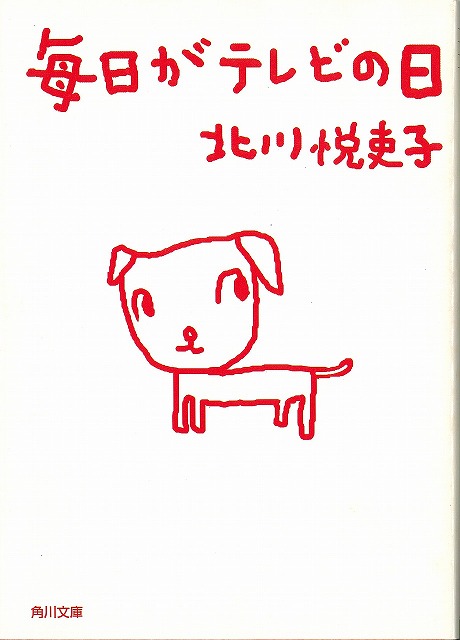 毎日がテレビの日
北川悦吏子
角川文庫